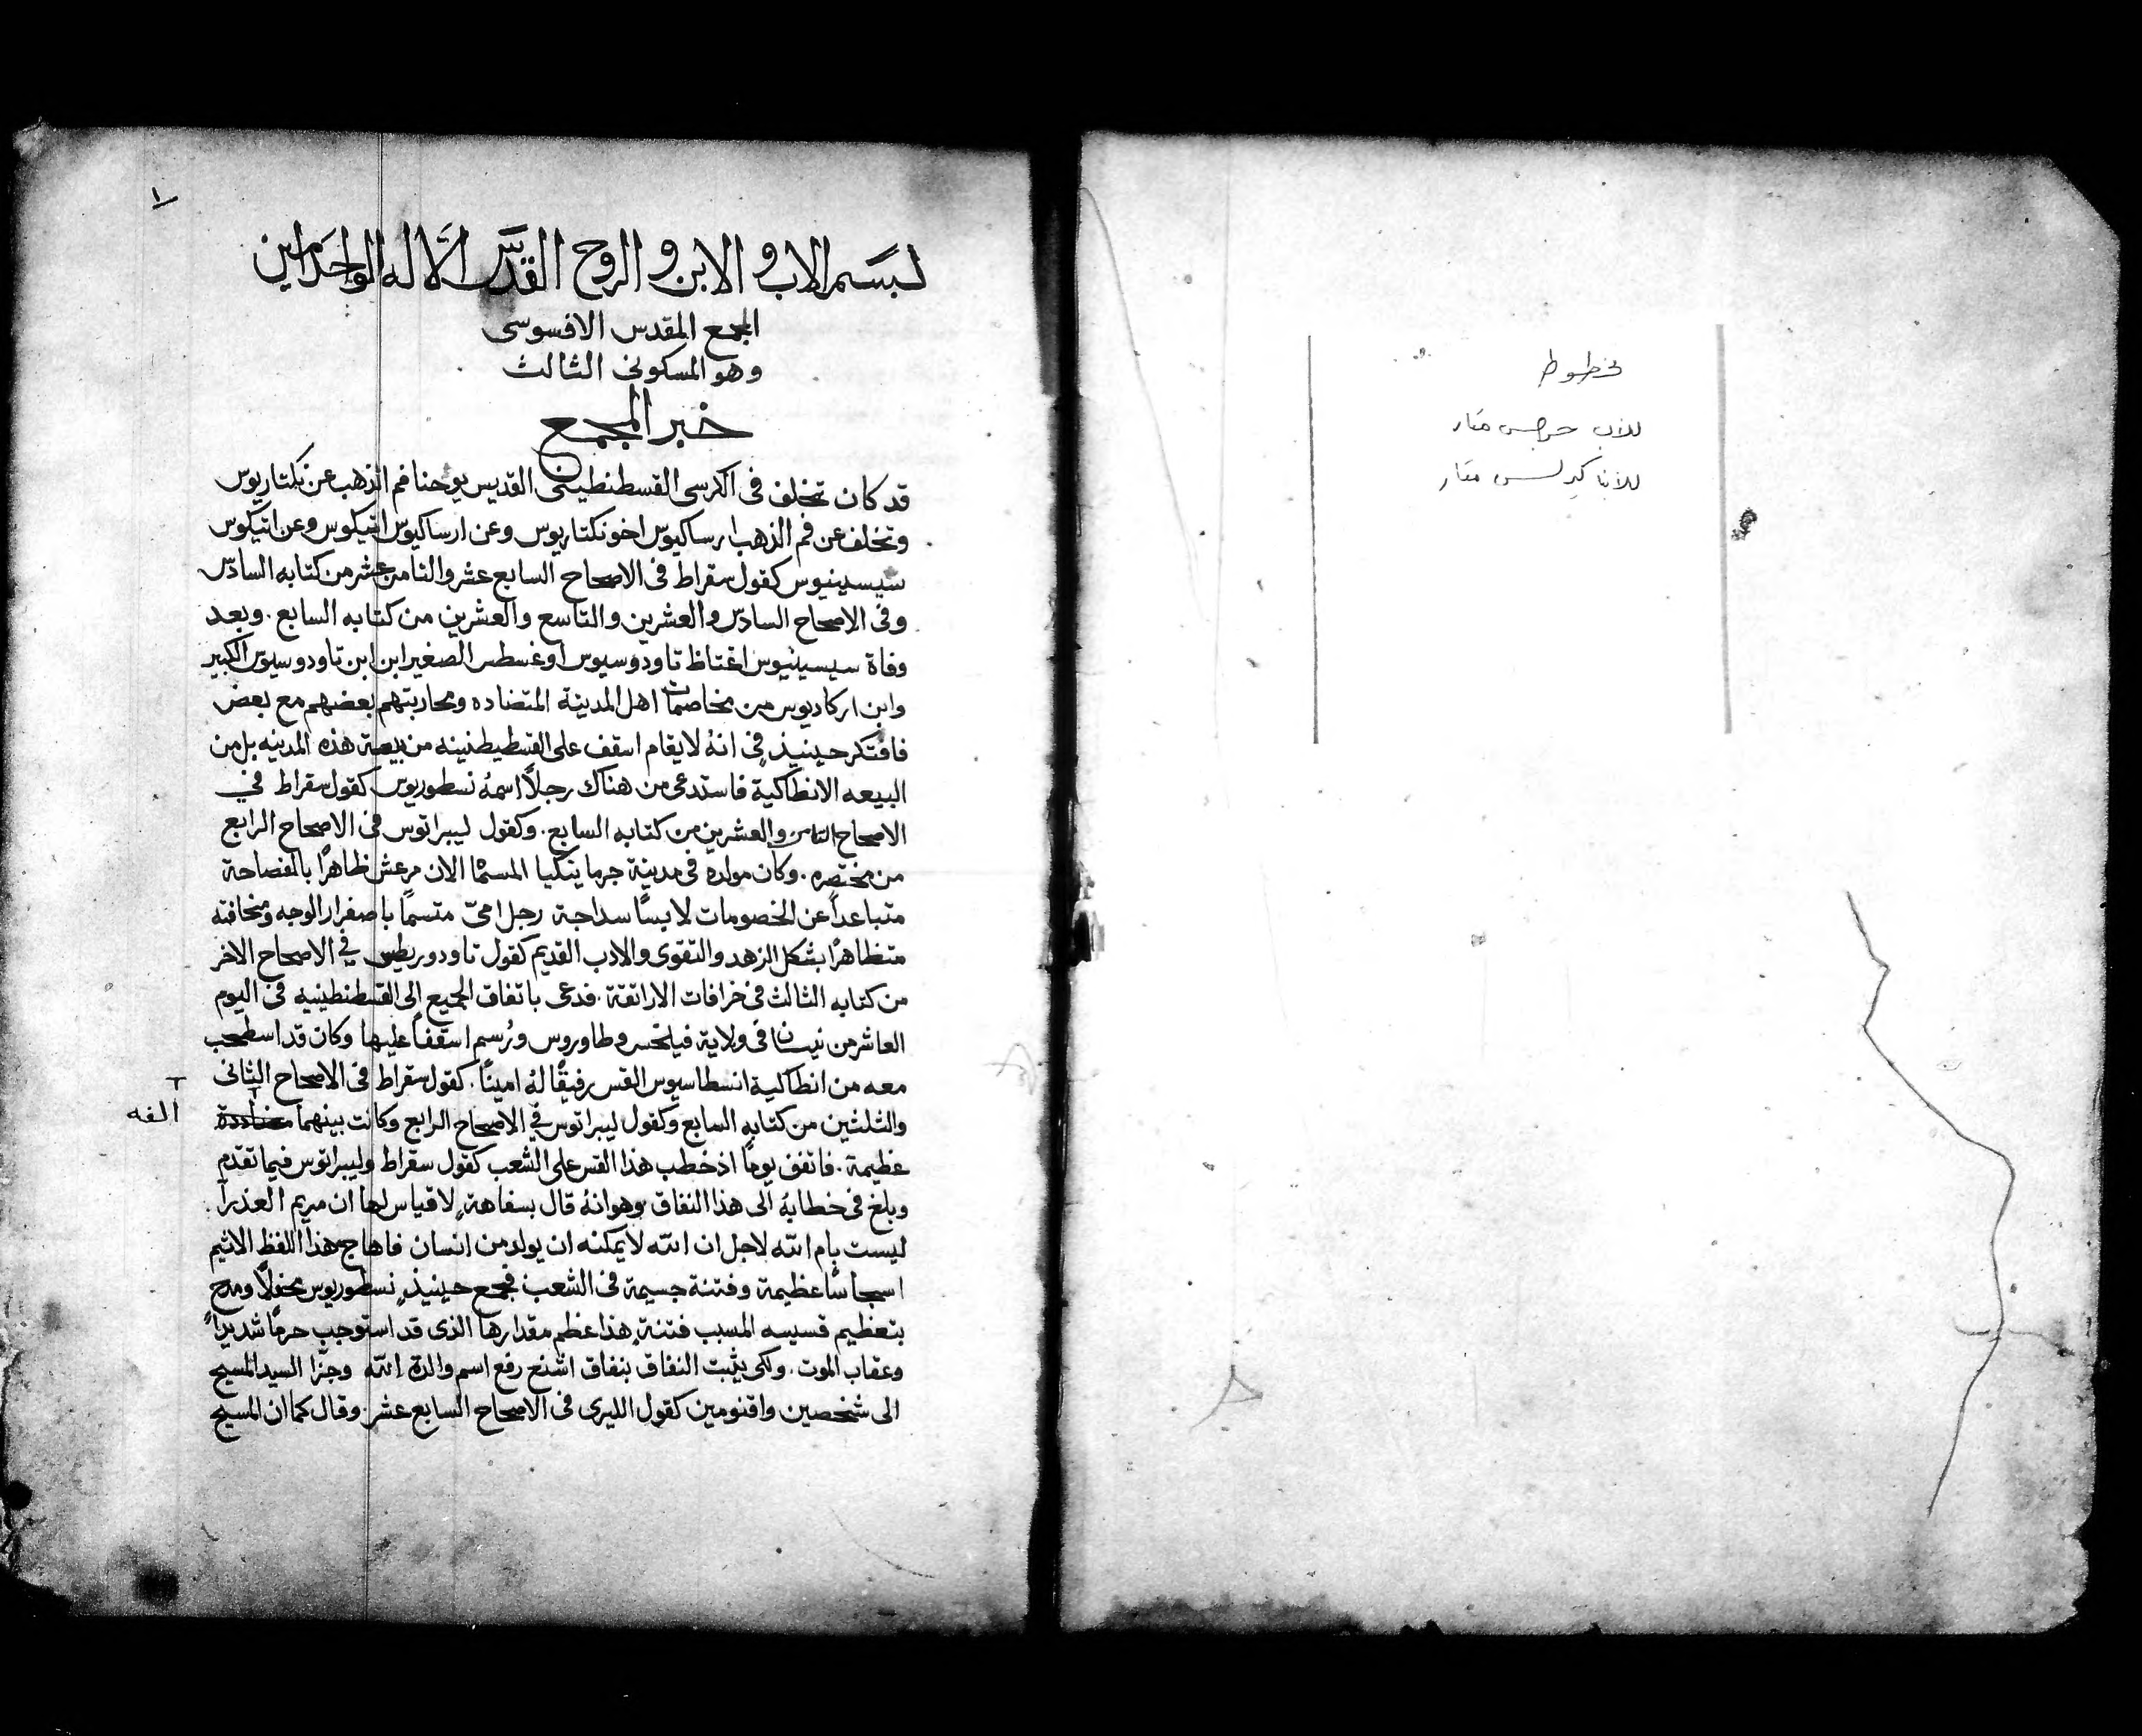 مخطوط
للاب جرجس مقار
للأنبا كيرلس مقار
١
بسم الاب والابن والروح القدس الاله الواحد امين
المجمع المقدس الافسوسى
وهو المسكونى الثالث
خبر المجمع
قد كان تخلف فى الكرسى القسطنطينى القديس يوحنا فم الذهب عن نكتاريوس
وتخلف عن فم الذهب ارساكيوس اخو نكتاريوس وعن ارساكيوس اتيكوس وعن اتيكوس
سيسينيوس كقول سقراط فى الاصحاح السابع عشر والثامن عشر من كتابه السادس
وفى الاصحاح السادس والعشرين والتاسع والعشرين من كتابه السابع . وبعد
وفاة سيسينيوس اغتاظ تاودوسيوس اوغسطس الصغير ابن ابن تاودوسيوس الكبير
وابن اركاديوس من مخاصمات اهل المدينة المتضاده ومحاربتهم بعضهم مع بعض
فافتكر حينيذٍ فى انهُ لا يقام اسقف على القسطيطنينيه من بيعة هذه المدينه بل من
البيعه الانطاكية فاستدعى من هناك رجلاً اسمهُ نسطوريوس كقول سقراط في
الاصحاح الثامن والعشرين من كتابه السابع . وكقول ليبراتوس فى الاصحاح الرابع
من مختصره . وكان مولده فى مدينة جرمانيكيا المسماة الان مرعش ظاهرًا بالفصاحة
متباعداً عن الخصومات لابسًا سداجة رجل امىّ متسمًا باصفرار الوجه ونحافته
متظاهرًا بشكل الزهد والتقوى والادب القديم كقول تاودوريطس في الاصحاح الاخر
من كتابه الثالث فى خرافات الاراتقة . فدعى باتفاق الجميع الى القسطنطينيه فى اليوم
العاشر من نيسان فى ولاية فيلخس وطاوروس ورُسم اسقفاً عليها وكان قد اسطحب
معه من انطاكية انسطاسيوس القس رفيقًا لهُ امينًا . كقول سقراط فى الاصحاح الثانى
والثلثين من كتابه السابع وكقول ليبراتوس في الاصحاح الرابع وكانت بينهما
الفه
عظيمة . فاتفق يومًا اذ خطب هذا القس على الشعب كقول سقراط وليبراتوس فيما تقدم
وبلغ فى خطابهُ الى هذا النفاق وهو انهُ قال بسفاهةٍ لا قياس لها ان مريم العذرآ
ليست بام الله لاجل ان الله لا يمكنه ان يولد من انسان فاهاج هذا اللفظ الاثيم
اسجاسًا عظيمة وفتنة جسيمة فى الشعب فجمع حينيذٍ نسطوريوس محفلاً ومدح
بتعظيم قسيسه المسبب فتنة هذا عظم مقدارها الذى قد استوجب حرمًا شديداً
وعقاب الموت . ولكى يثبت النفاق بنفاق اشنع رفع اسم والدة الله وجزا السيد المسيح
الى شخصين واقنومين كقول الليرى فى الاصحاح السابع عشر . وقال كما ان المسيح